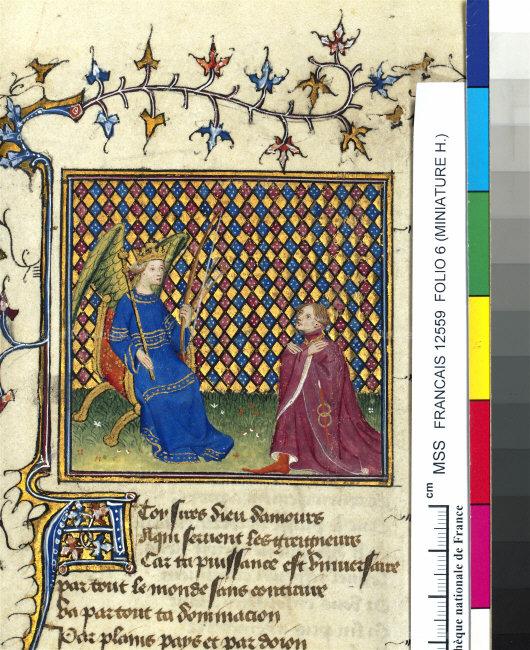 A Toy sires dieu damours
A qui seruent les greigneurs
Car ta puissance est vniuersaire
par tout le monde sans contraire
Va par tout ta dominacion
Par plains pays et par
MSS FRANCAIS 12559 FOLIO 6 (MINIATURE H.)
cm
hèque nationale de France